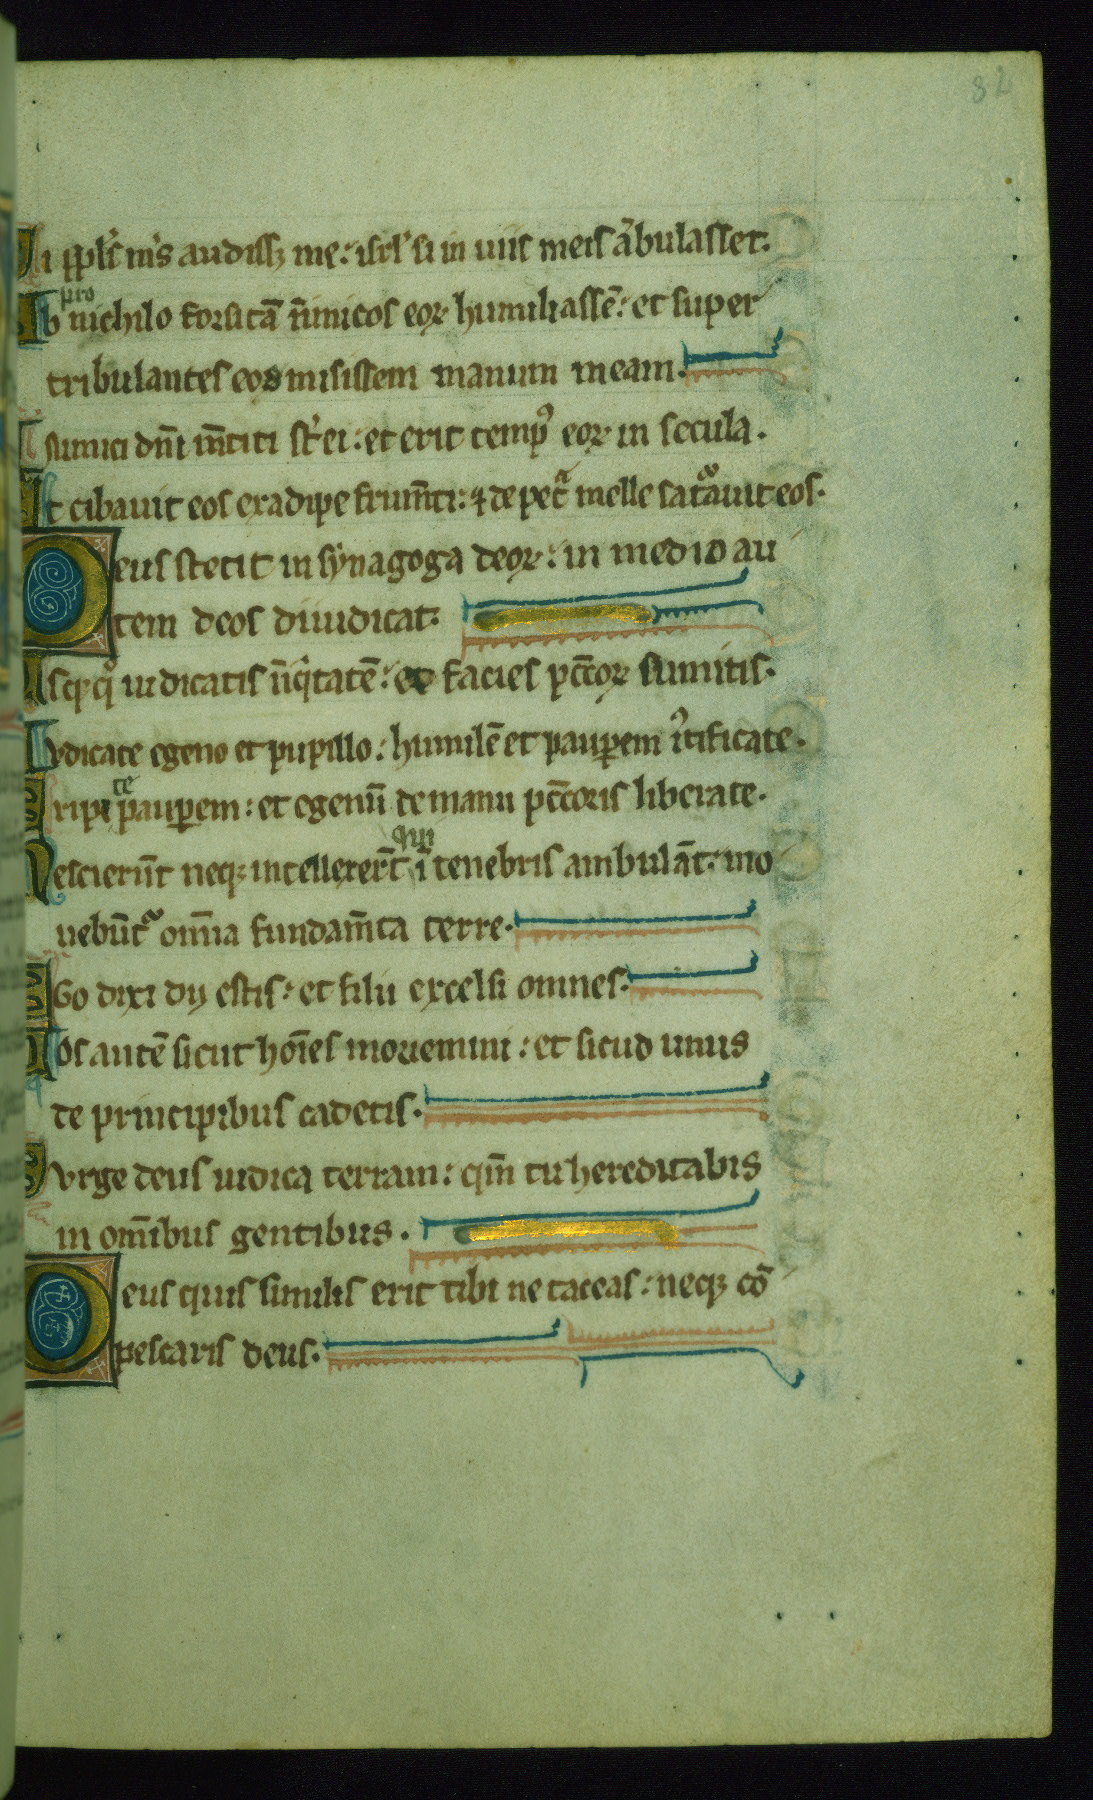 82
Si ppl's m's audiss; me: isrl' si in uiis meis ābulasset.
Pro
Ib nichilo forsitā inimicos eoꝝ humiliassē: et super
tribulantes eos misissem manum meam.
Inimici dn̄i m̄titi st' ei: et erit temp' eoꝝ in secula.
Et cibauit eos ex adipe frum̄ti: ⁊ de petͣ melle saturauit eos.
Deus stetit in synagoga deoꝝ: in medio au
tem deos diiudicat.
Usq;q° iudicatis iniq'tatē: et facies pcc̄oꝝ sumitis.
Iudicate egeno et pupillo: humilē et pauꝑem i'tificate.
te
Eripi pauꝑem: et egenū de manu pcc̄oris liberate.
Nescierūt neq; intellexer̄t ī tenebris ambulāt: mo
uebūt' om̄ia fundam̄ta terre.
Ego dixi dij estis: et filii excelsi omnes.
Uos autē sicut hoīes moriemini: et sicud unus
de principibus cadetis.
Surge deus iudica terram: qm̄ tu hereditabis
in om̄ibus gentibus.
Deus quis similis erit tibi ne taceas: neq; cō
pescaris deus.